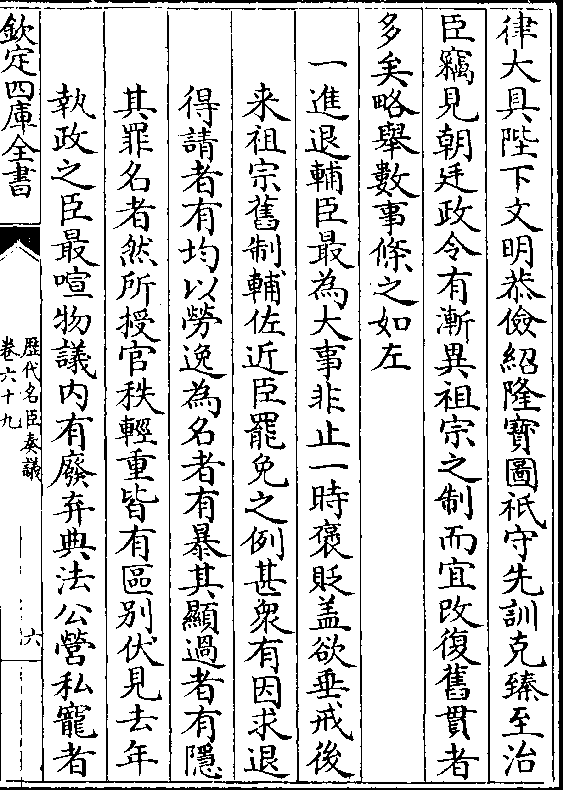 律大具陛下文明恭儉紹隆寶圖祇守先訓克臻至治
臣竊見朝廷政令有漸異祖宗之制而宜改復舊貫者
多矣略舉數事條之如左
一進退輔臣最為大事非止一時褒貶盖欲垂戒後
来祖宗舊制輔佐近臣罷免之例甚衆有因求退
得請者有均以勞逸為名者有暴其顯過者有隱
其罪名者然所授官秩輕重皆有區别伏見去年
執政之臣最喧物議内有廢弃典法公營私寵者
欽定四庫全書
歴代名臣奏議
卷六十九
六